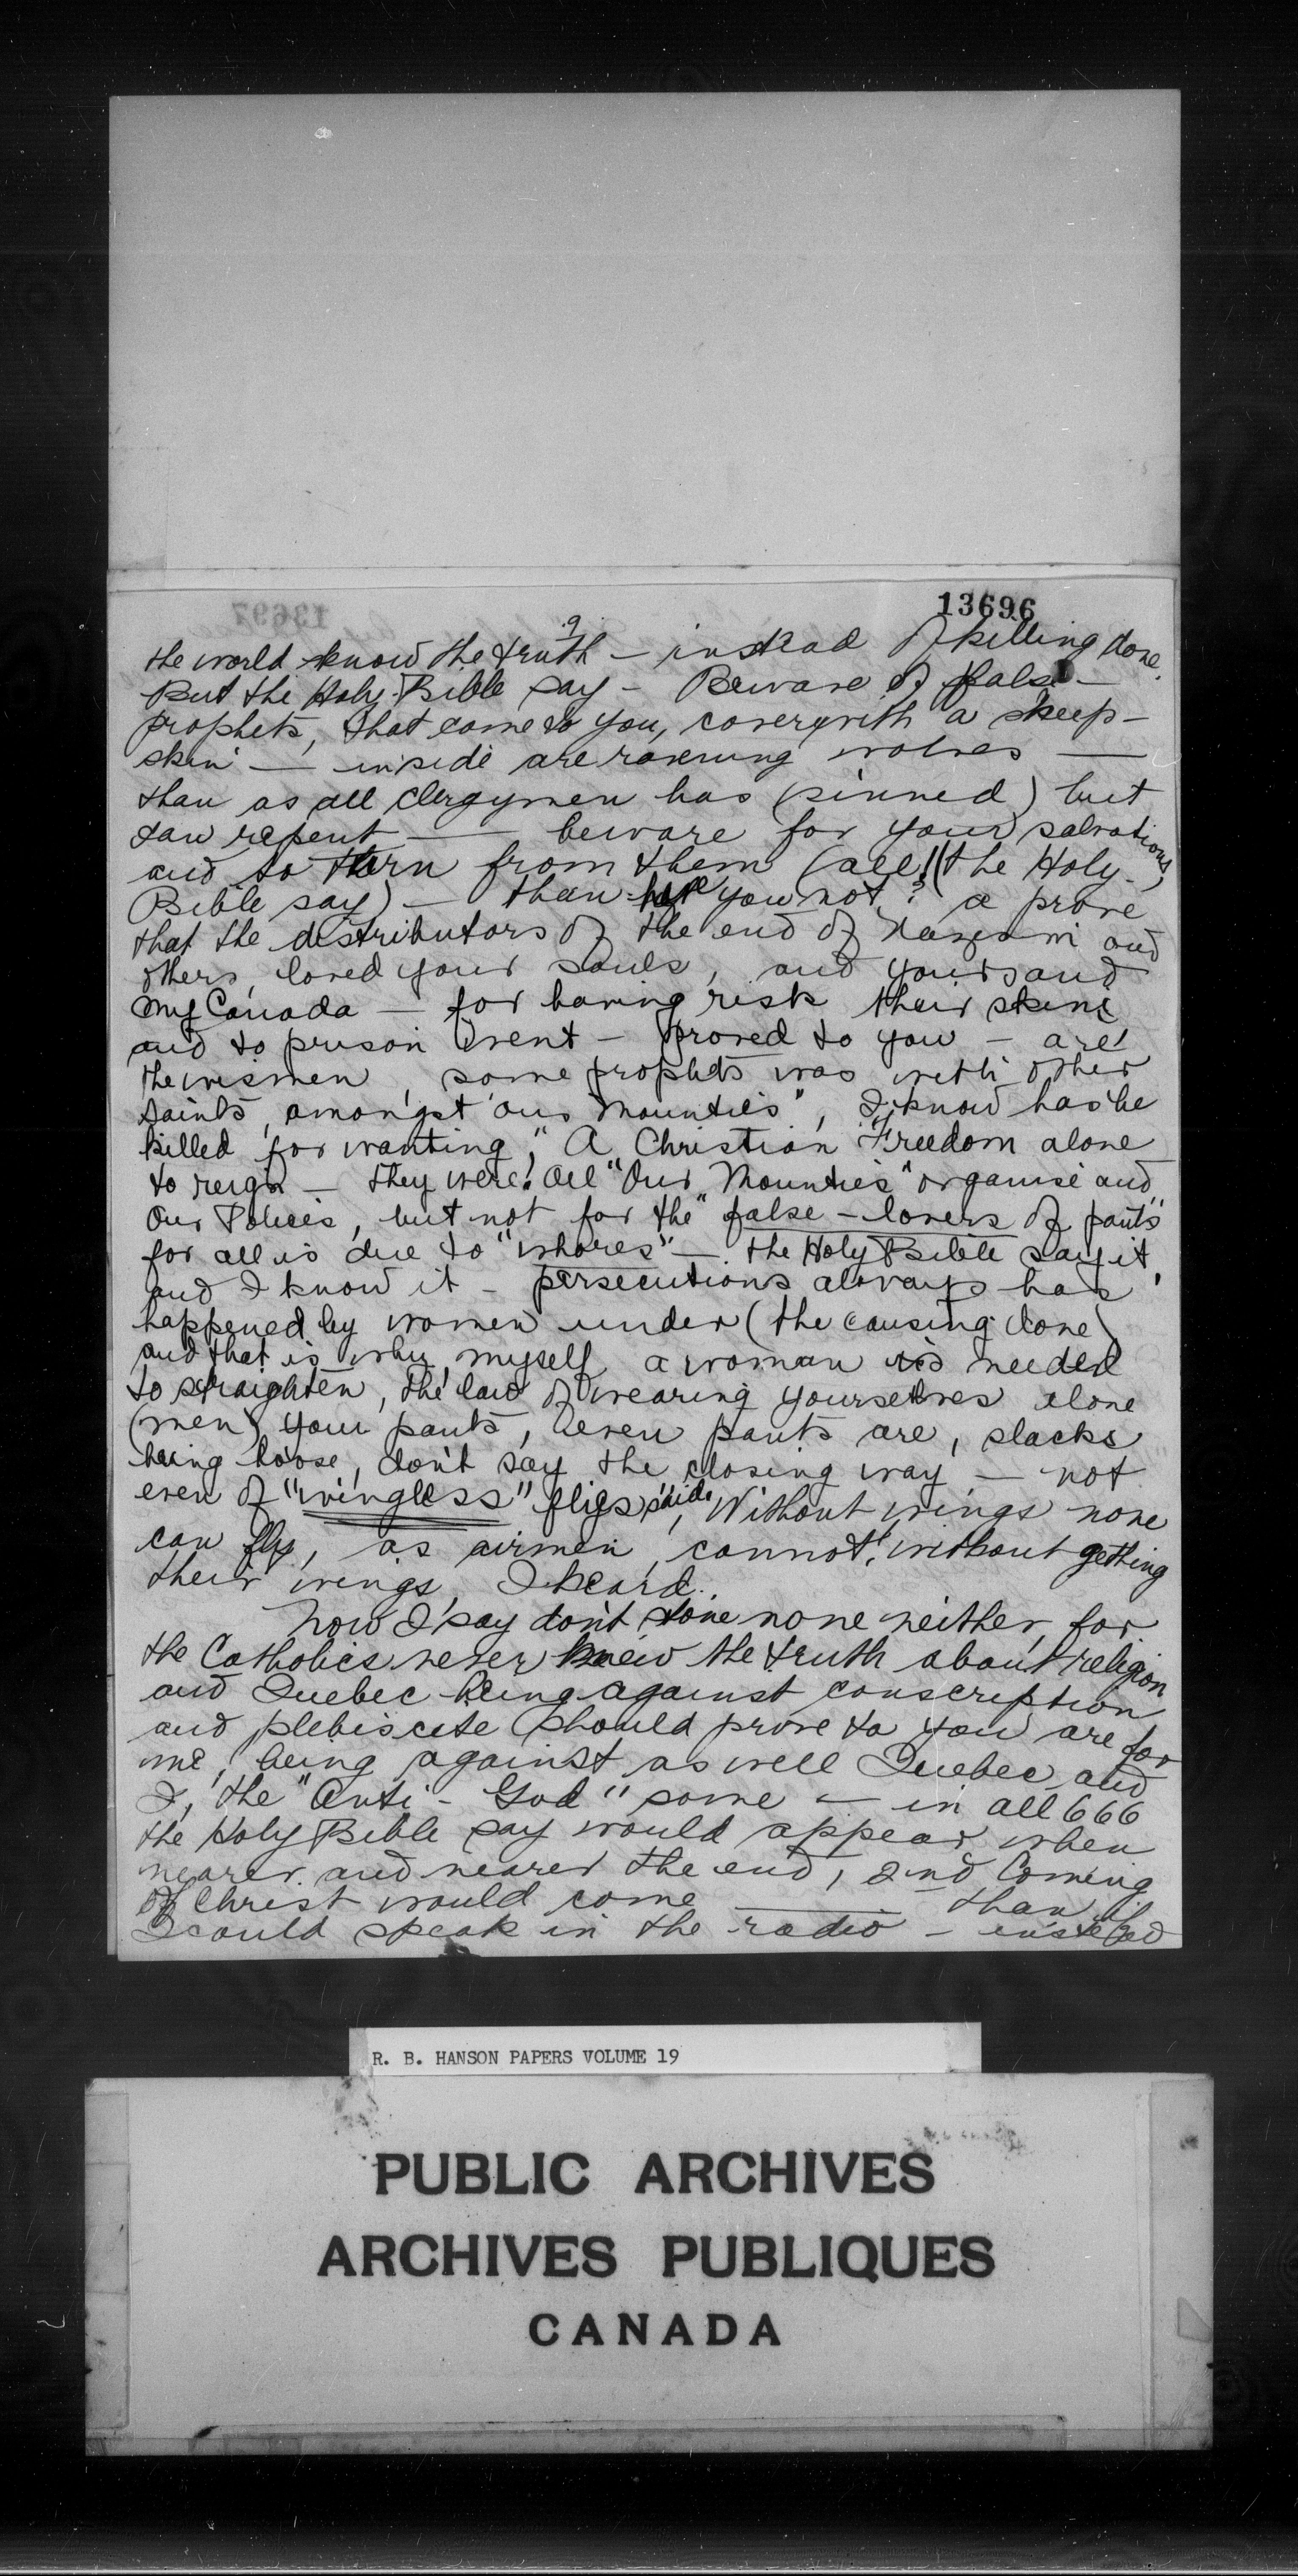 13696
9
the world know the truth – instead of killing done.
But the Holy Bible say – Beware of false –
prophets, that come to you, cover with a sheep –
skin – inside are ravening wolves —
than as all Clergymen has (sinned) but
can repent — beware for your salvations,
and so turn from them (all! (the Holy
Bible say) – than you not? a prove
that the distributors of the end of Nazism and
others, loved your souls, and yours and
my Canada – for having risk their skins
and to prison went – proved to you – are
the wismen, some prophets was with other
saints, amongst "our Mounties", I know has be
killed for wanting, "A Christian Freedom alone
to reign – they were! All "Our Mounties" organise and
Our Polices, but not for the "false – lovers of pants"
for all is due to "whores" – the Holy Bible say it,
and I know it – persecutions always has
happened by women under (the causing done)
and that is why, myself a woman is needed
to straighten, the law of wearing yourselves alone
(men) your pants, even pants are, slacks
being loose, don't say the closing way – not
even of "wingless" flies said, Without wings none
can fly, as airmen, cannot! without getting
their wings I heard.
Now I say don't stone none neither, for
the Catholics never knew the truth about religion
and Quebec being against conscription
and plebiscite should prove to you are for
me, being against as well Quebec and
I, the "Anti – God" some – in all 666
the Holy Bible say would appear when
nearer and nearer the end, 2nd Coming
of Christ would come — than if
I could speak in the radio – instead
R. B. HANSON PAPERS VOLUME 19
PUBLIC ARCHIVES
ARCHIVES PUBLIQUES
CANADA